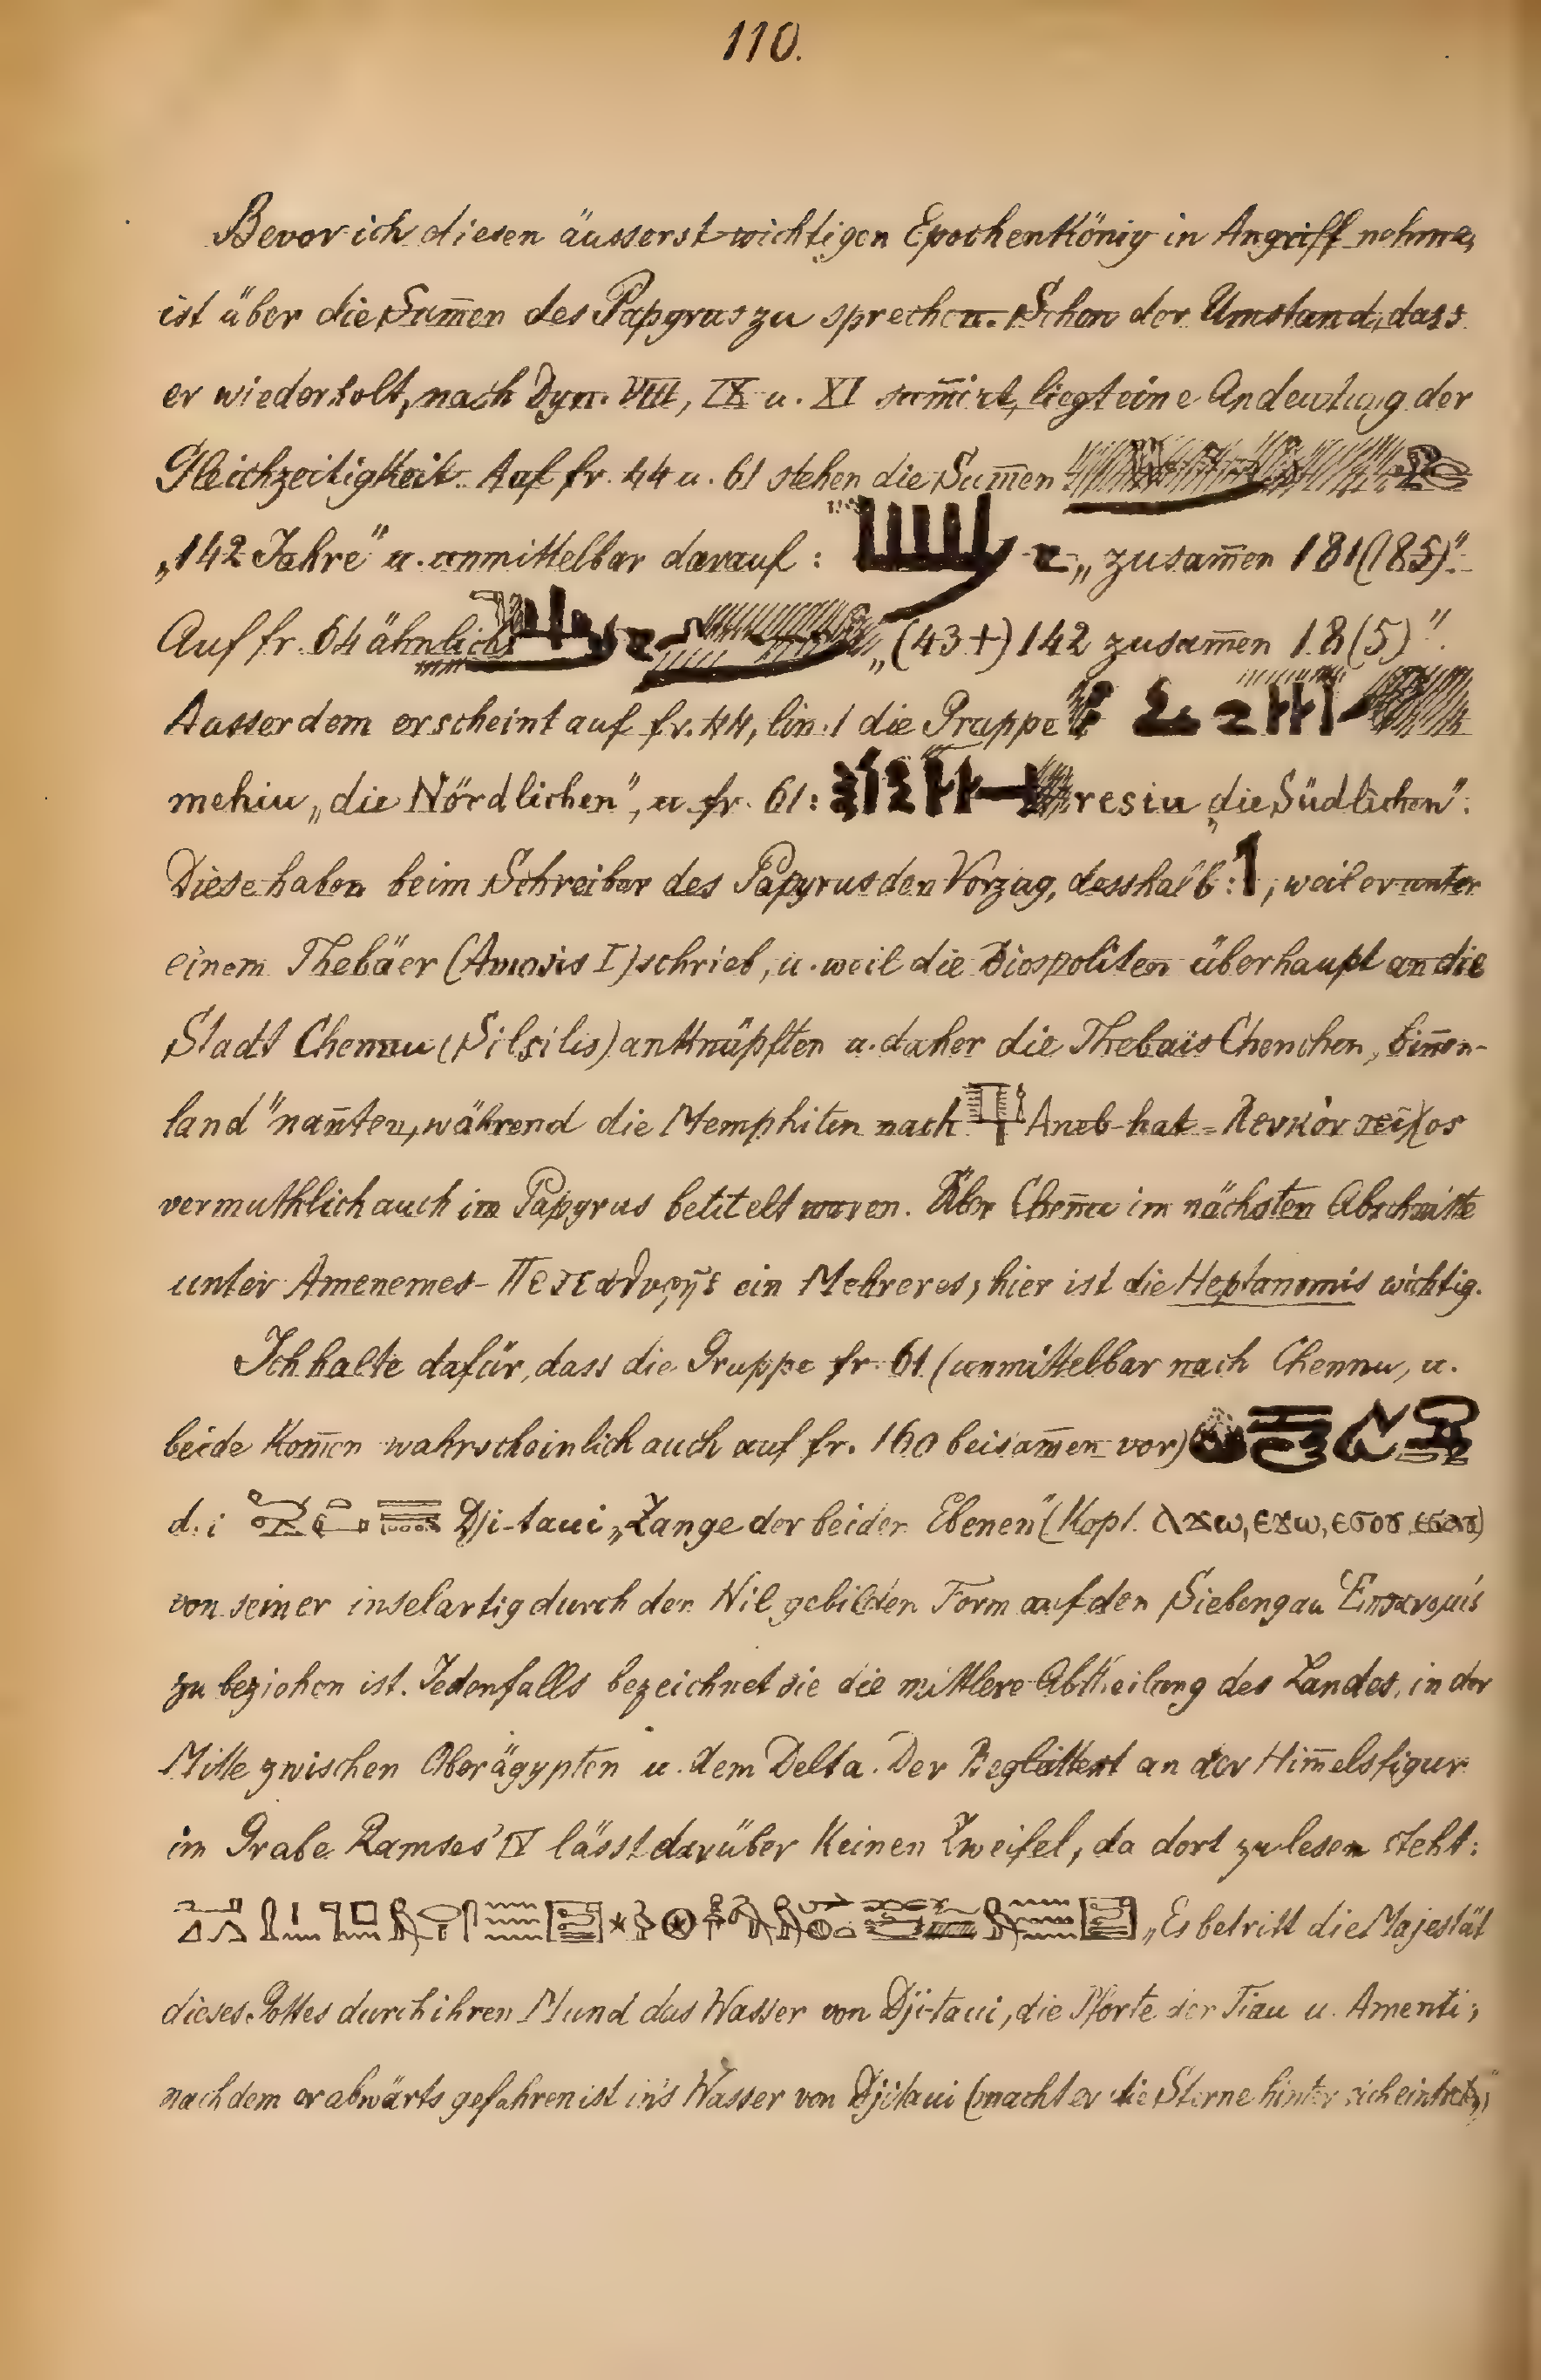 110.
Bevor ich diesen äusserst wichtigen Epochenkönig in Angriff nehme,
ist über die Sum̄en des Papyrus zu sprechen. Schon der Umstand, dass
er wiederholt, nach Dyn. VIII, IX u. XI sum̄irt, liegt eine Andeutung der
Gleichzeitigkeit. Auf fr. 44 u. 61 stehen die Sum̄en
„142 Jahre" u. unmittelbar darauf: „zusam̄en 181(185)".
Auf fr. 64 ähnlich: „(43+) 142 zusam̄en 18(5)".
Ausserdem erscheint auf fr. 44, lin. 1 die Gruppe
mehiu „die Nördlichen", u. fr. 61: resiu „die Südlichen".
Diese haben beim Schreiber des Papyrus den Vorzug, desshalb: 1, weil er unter
einem Thebäer (Amosis I) schrieb, u. weil die Diospoliten überhaupt an die
Stadt Chennu (Silsilis) anknüpften u. daher die Thebais Chenchen „Bin̄en-
land" nan̄ten, während die Memphiten nach Aneb-hat = Λευκὸν τεῖχος
vermuthlich auch im Papyrus betitelt waren. Über Chen̄u im nächsten Abschnitte
unter Amenemes- ein Mehreres; hier ist die Heptanomis wichtig.
Ich halte dafür, dass die Gruppe fr. 61 (unmittelbar nach Chennu, u.
beide kom̄en wahrscheinlich auch auf fr. 160 beisam̄en vor)
d. i. Dji-taui „Zange der beiden Ebenen" (Kopt. ϫω, ⲉϫω, ⲉϭⲟⲩ)
von seiner inselartig durch den Nil gebildeten Form auf den Siebengau Ἑπτανομίς
zu beziehen ist. Jedenfalls bezeichnet sie die mittlere Abtheilung des Landes, in der
Mitte zwischen Oberägypten u. dem Delta. Der Begleittext an der Him̄elsfigur
im Grabe Ramses' IV lässt darüber keinen Zweifel, da dort zu lesen steht:
„Es betritt die Majestät
dieses Gottes durch ihren Mund das Wasser von Dji-taui, die Pforte der Tiau u. Amenti;
nachdem er abwärts gefahren ist in's Wasser von Djitaui (macht er die Sterne hinter sich eintreten)"